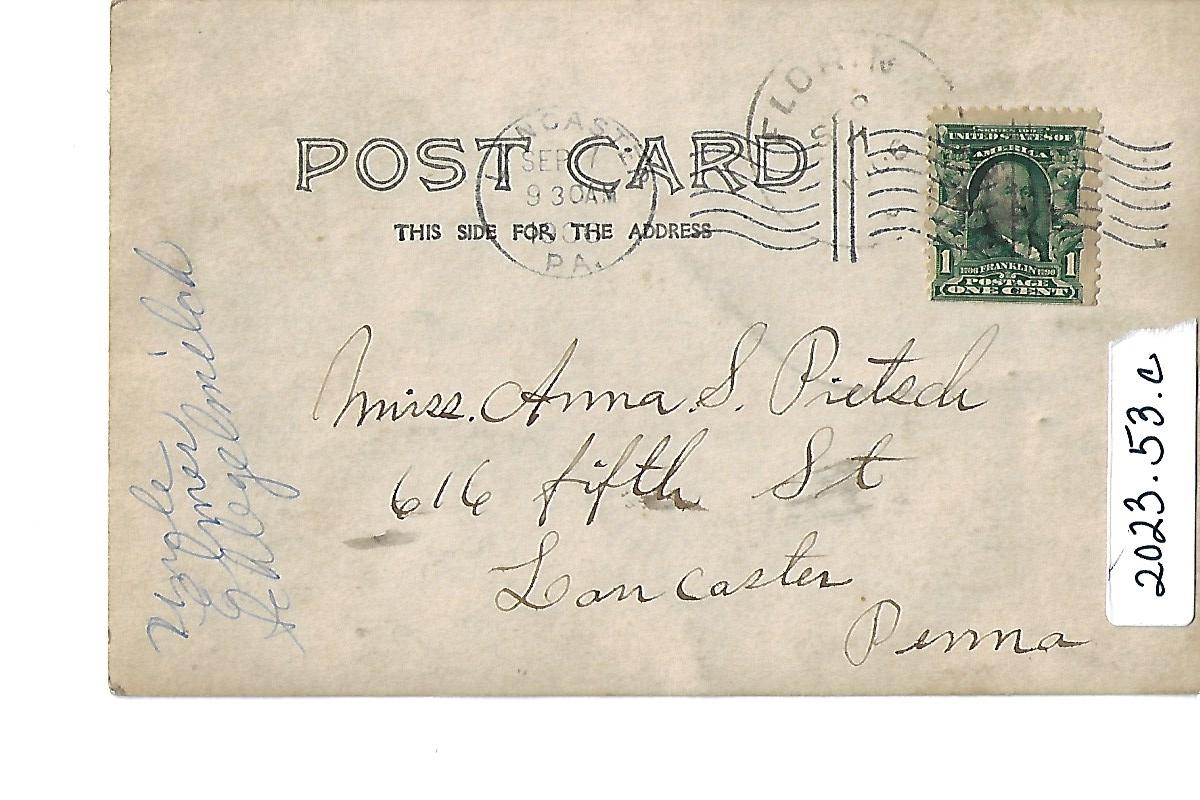 POST CARD
THIS SIDE FOR THE ADDRESS
SEP 7
9 30 AM
PA.
FLORIN
UNITED STATES OF
AMERICA
1706 FRANKLIN 1790
1 POSTAGE 1
ONE CENT
Miss. Anna. S. Pietsch
616 fifth St
Lancaster
Penna
Elmer
2023.53.c